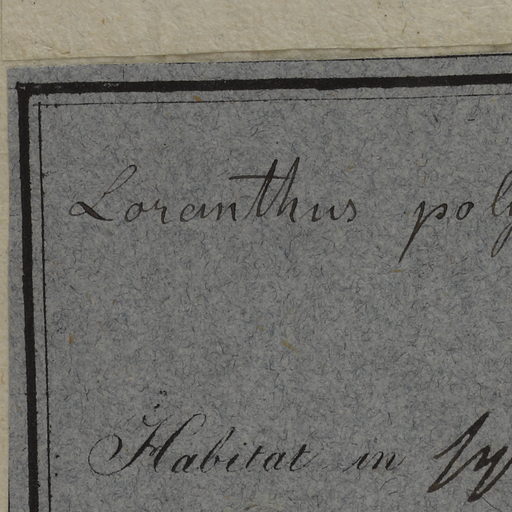 Loranthus poly
Habitat in sy